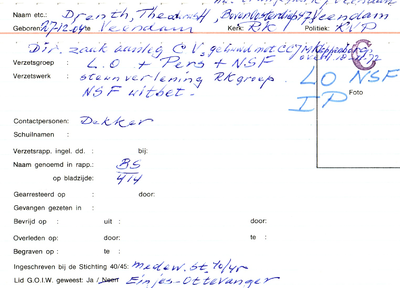 Naam etc. Drenth, Theod. Veendam
Geboren 27-12-04 te Veendam Kerk: RK Politiek: RVP
Dir. zaak aanleg C.V., gehuwd met
Verzetsgroep : L.O + Pers + NSF
Verzetswerk : steunverlening RKgroep.
NSF witbet.
LO NSF
IP
C
Foto
Contactpersonen: Dekker
Schuilnaam :
Verzetsrapp. ingel. dd. : bij:
Naam genoemd in rapp.: BS
op bladzijde: 414
Gearresteerd op : door:
Gevangen gezeten in :
Bevrijd op : uit : door:
Overleden op: door: te :
Begraven op : te :
Ingeschreven bij de Stichting 40/45: medew. St. 40/45
Lid G.O.I.W. geweest: Ja / Neen Eintjes-Ottevanger